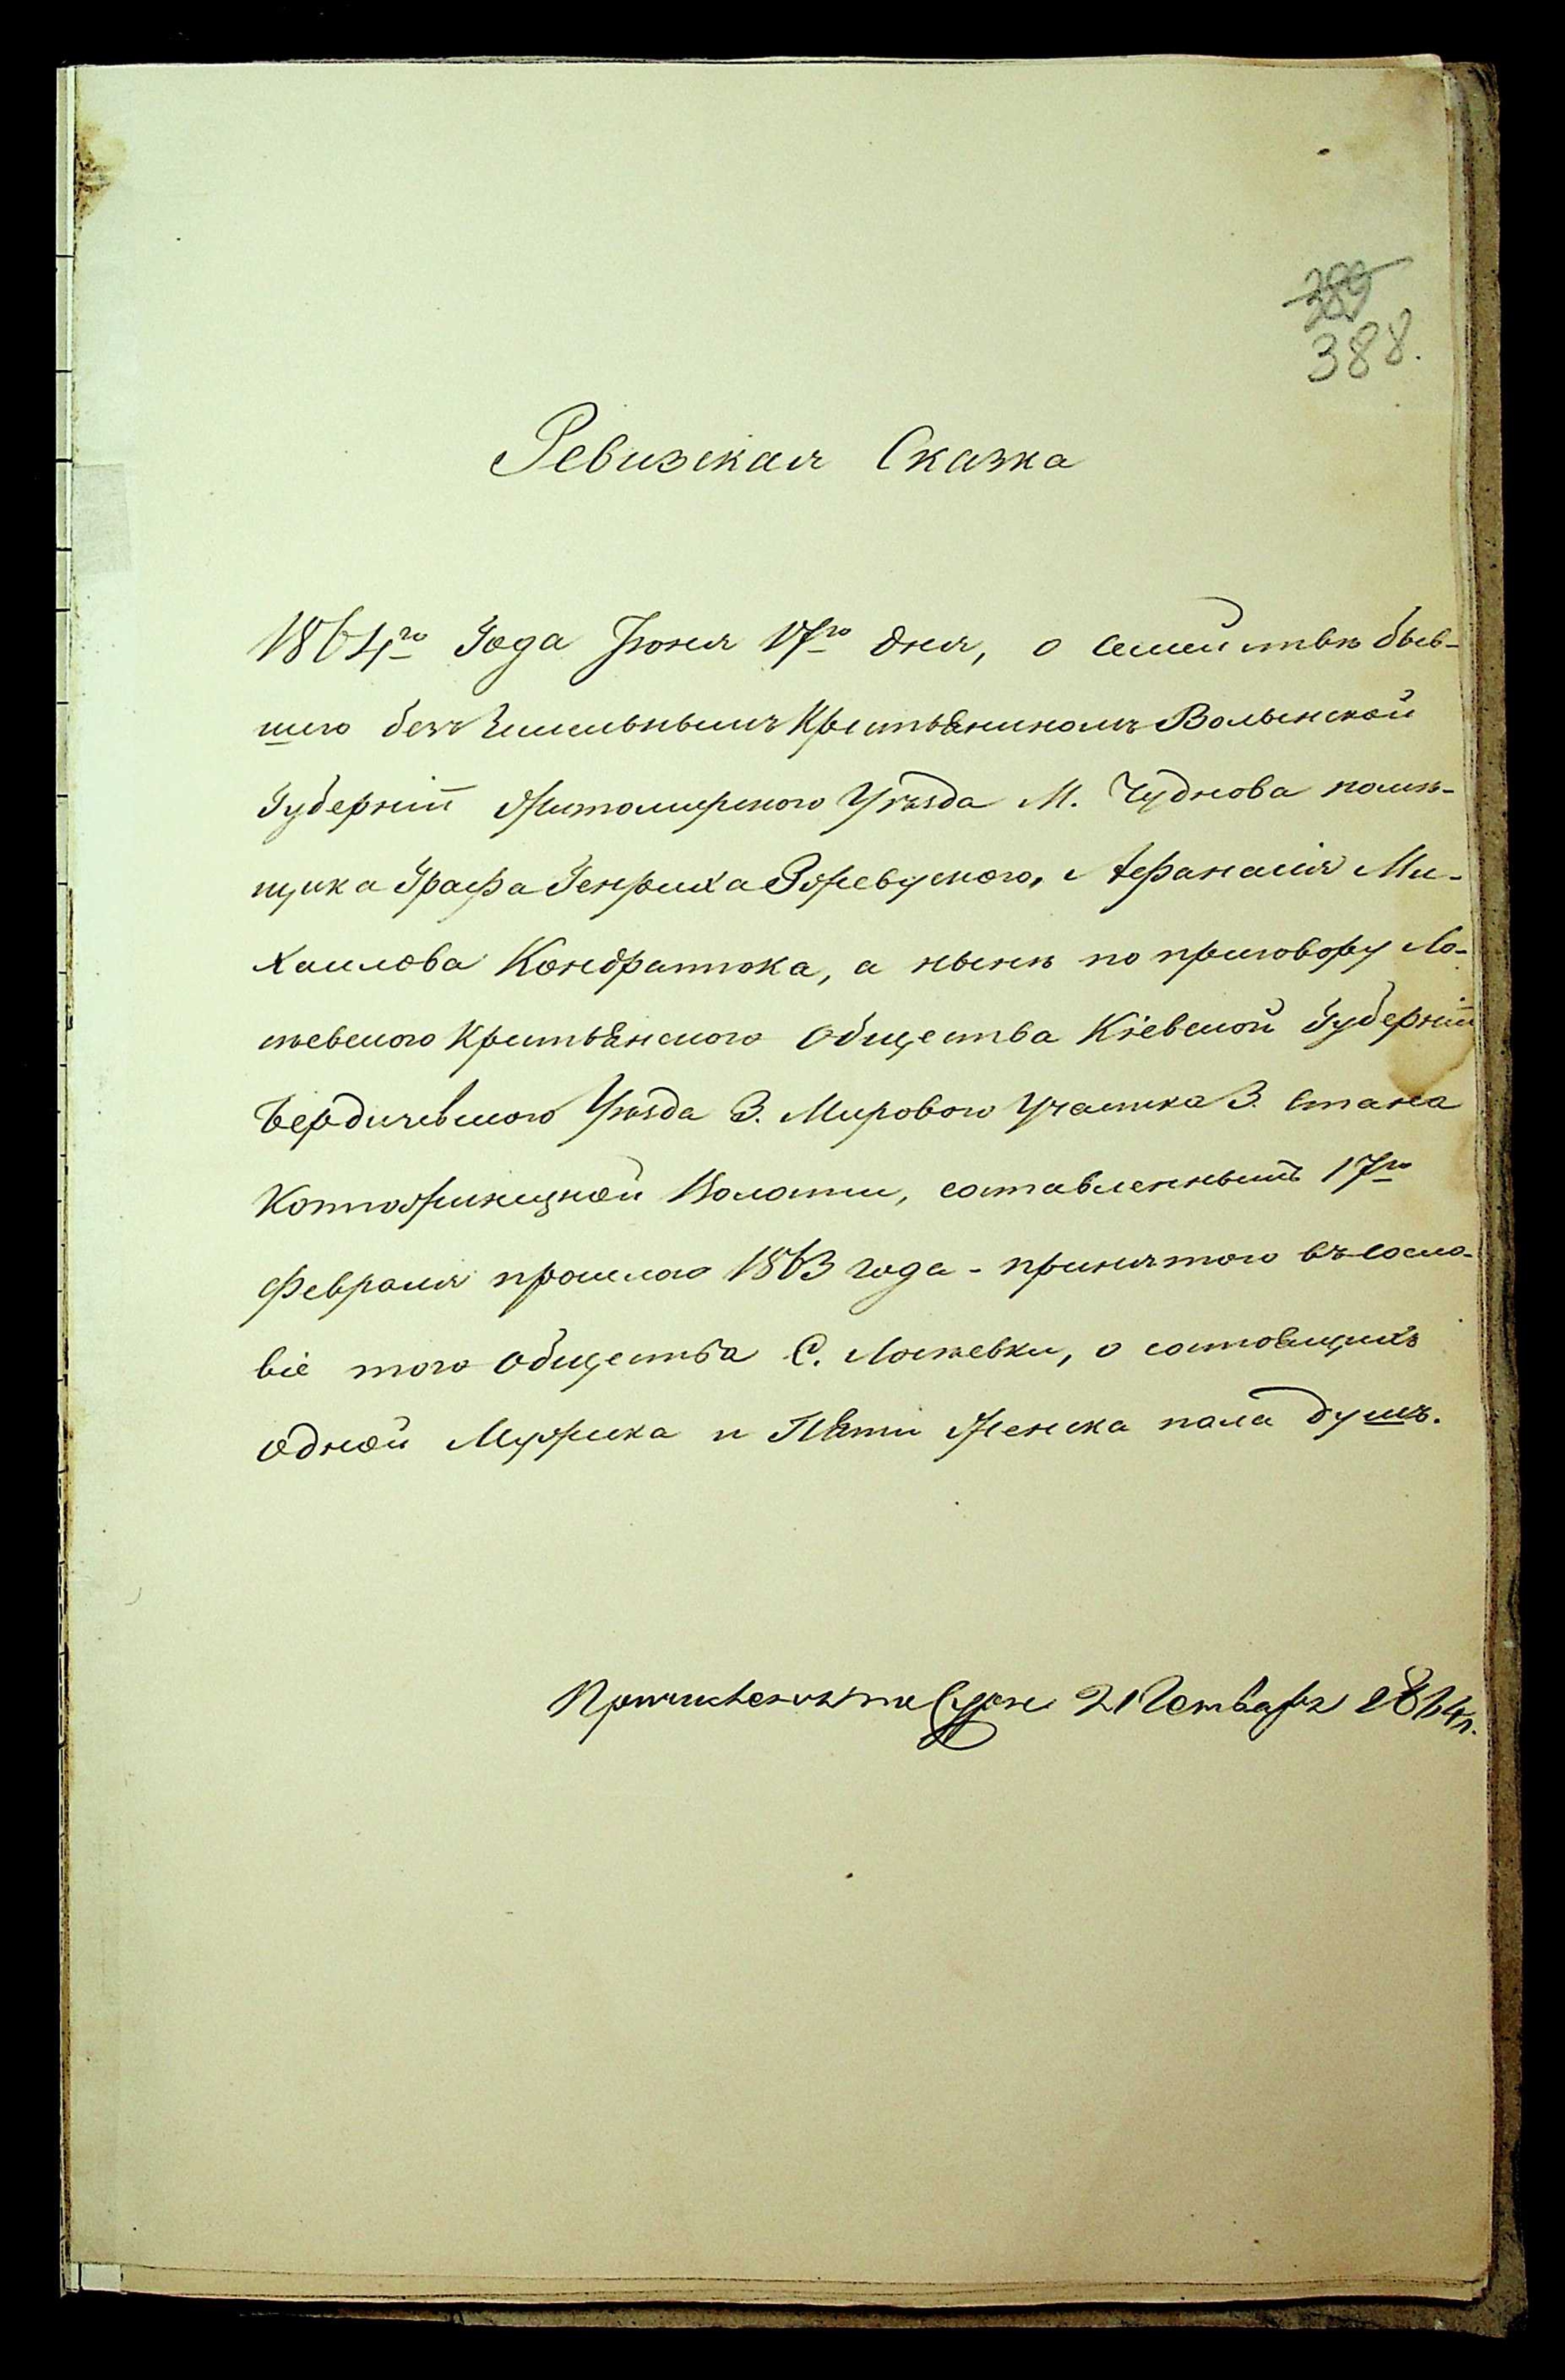 389
388.
Ревизская Сказка
1864го Года Іюня 17го дня, о семействѣ быв-
шего безземельнымъ Крестьяниномъ Волынской
Губерніи Житомирского Уѣзда М. Чуднова помѣ-
щика Графа Генриха Ржевуского, Афанасія Ми-
хаилова Кондратюка, а нынѣ по приговору Ло-
зѣевского Крестьянского Общества Кіевской Губерніи
Бердичевского Уѣзда 3. Мирового Участка 3. Стана
Котюжинецкой Волости, составленнымъ 17го
Февраля прошлого 1863 года - принятого въ сосло-
віе того Общества С. , о состоящихъ
одной Мужска и Пяти Женска пола душъ.
21 1864г.